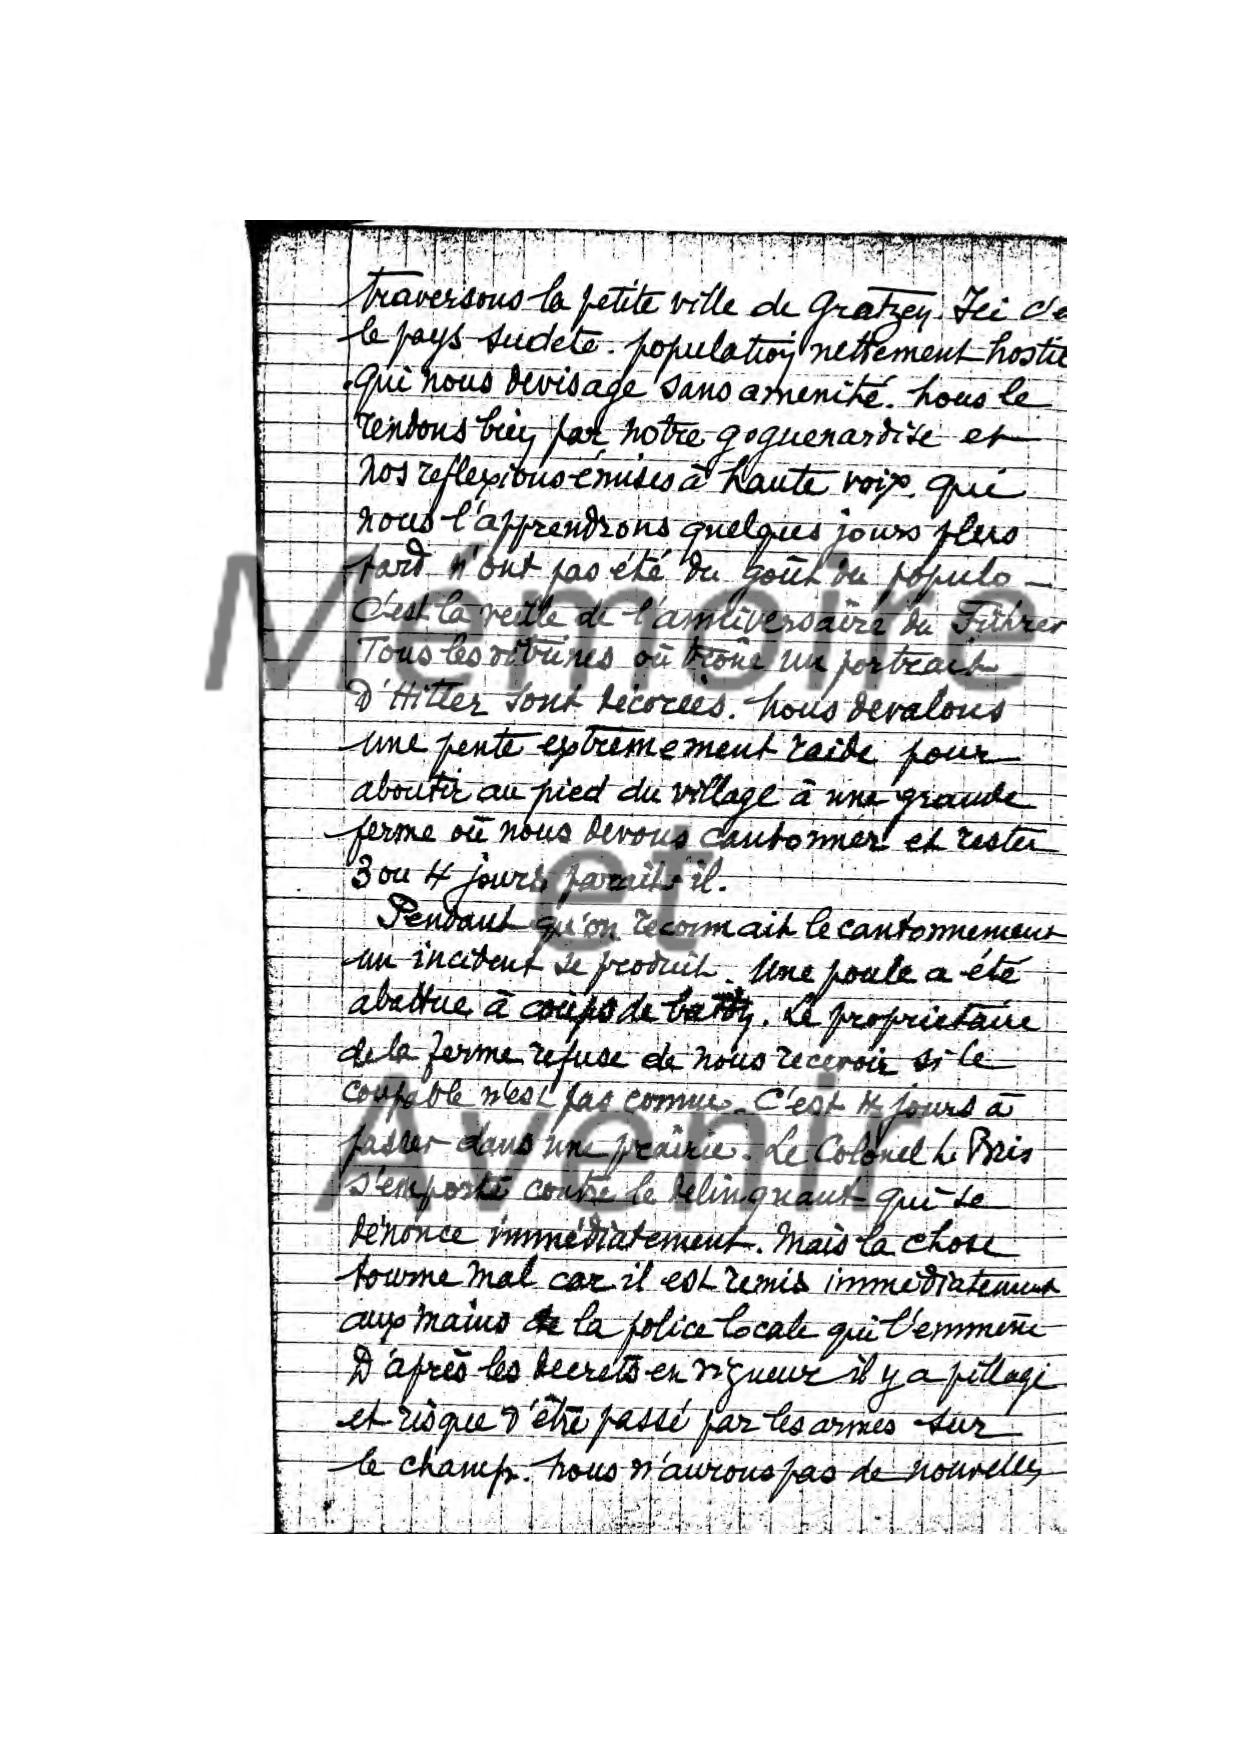 traversons la petite ville de Gratzen. Ici c'e
le pays sudète. population nettement hostil
qui nous devisage sans amenité. nous le
rendons bien par notre goguenardise et
nos reflexions émises à haute voix. qui
nous l'apprendrons quelques jours plus
tard n'ont pas été du goût du populo –
C'est la veille de l'anniversaire du Führer
Tous les vitrines où trône un portrait
d'Hitler sont décorées. nous devalons
une pente extrêmement raide pour
aboutir au pied du village à une grande
ferme où nous devons cantonner et rester
3 ou 4 jours parait il.
Pendant qu'on reconnait le cantonnement
un incident se produit. Une poule a été
abattue à coups de baton. Le proprietaire
de la ferme refuse de nous recevoir si le
coupable n'est pas connu. C'est 4 jours à
passer dans une prairie. Le Colonel Le Bris
s'emporte contre le delinquant qui se
dénonce immédiatement. Mais la chose
tourne mal car il est remis immediatement
aux mains de la police locale qui l'emmène
D'après les decrets en vigueur il y a pillage
et risque d'être passé par les armes sur
le champ. nous n'aurons pas de nouvelles
Mémoire
et
Avenir